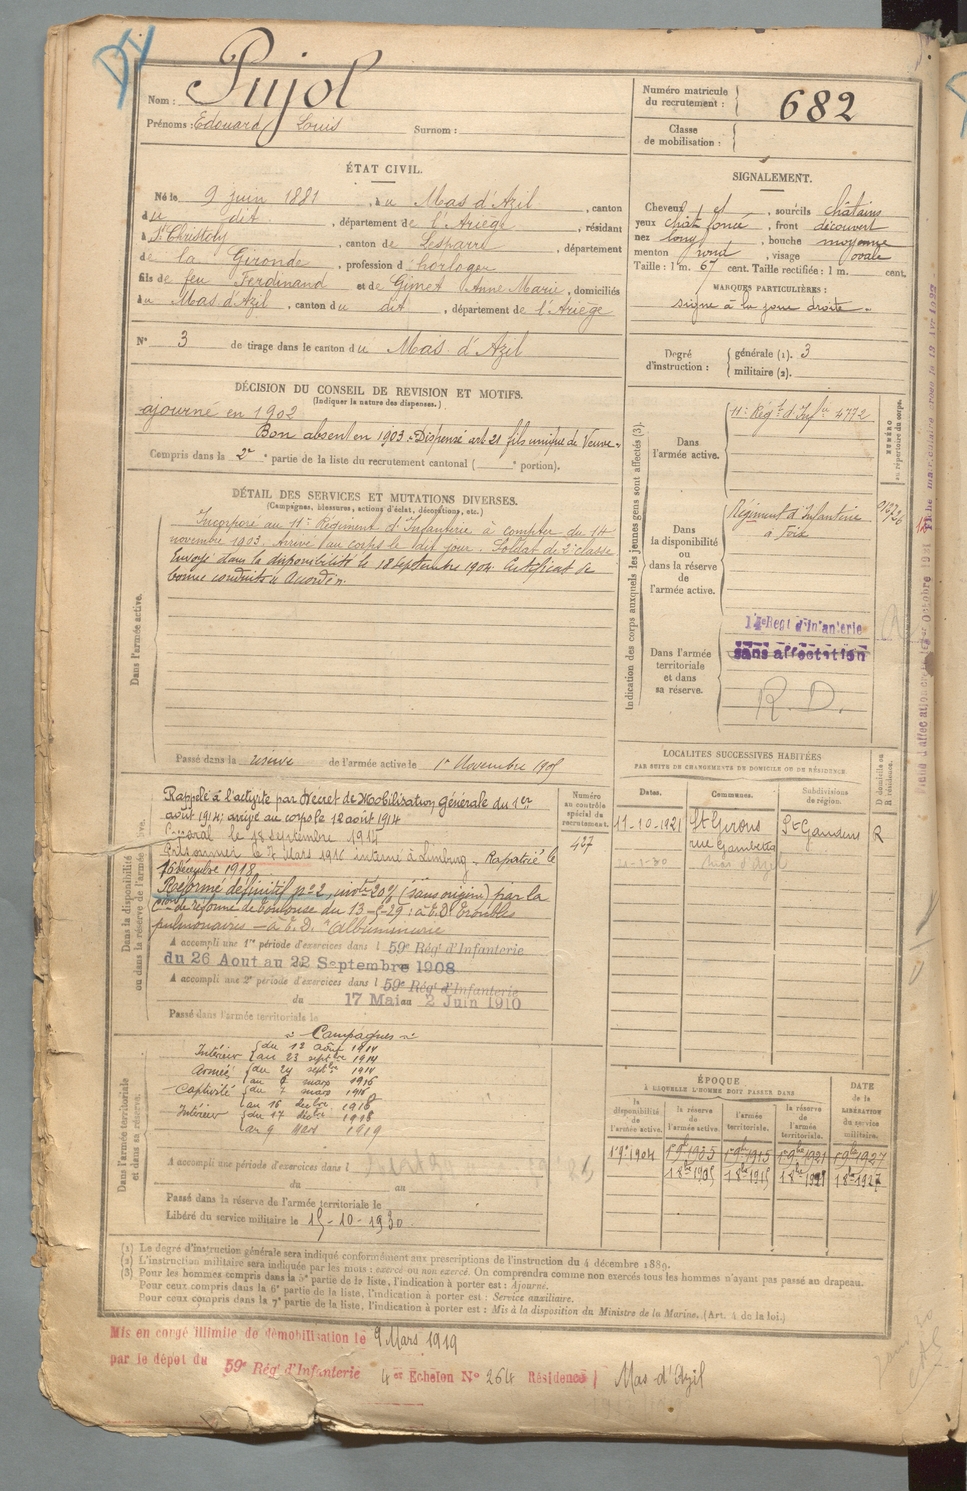 Nom : Pujol
Prénoms : Edouard Louis Surnom :
Numéro matricule du recrutement : 682
Classe de mobilisation :
ÉTAT CIVIL.
Né le 9 juin 1881, à u Mas d'Azil, canton
du dit, département de l'Ariège, résidant
à St Christoly, canton de Lesparre, département
de la Gironde, profession d'horloger
fils de feu Ferdinand et de Gimet Anne Marie, domiciliés
à u Mas d'Azil, canton du dit, département de l'Ariège
N° 3 de tirage dans le canton du Mas d'Azil
SIGNALEMENT.
Cheveux et, sourcils châtains
yeux chât foncé, front découvert
nez long, bouche moyenne
menton rond, visage ovale
Taille : 1 m. 67 cent. Taille rectifiée : 1 m. cent.
MARQUES PARTICULIÈRES :
signe à la joue droite.
Degré d'instruction : générale (1). 3
militaire (2).
DÉCISION DU CONSEIL DE RÉVISION ET MOTIFS.
(Indiquer la nature des dispenses.)
ajourné en 1902
Bon absent en 1903. Dispensé art 21 fils unique de Veuve.
Compris dans la 2e partie de la liste du recrutement cantonal ( e portion).
DÉTAIL DES SERVICES ET MUTATIONS DIVERSES.
(Campagnes, blessures, actions d'éclat, décorations, etc.)
Dans l'armée active.
Incorporé au 11e Régiment d'Infanterie à compter du 14
novembre 1903. Arrivé au corps le dit jour. Soldat de 2e classe
Envoyé dans la disponibilité le 18 Septembre 1904. Certificat de
bonne conduite Accordé.
Passé dans la réserve de l'armée active le 1er Novembre 190
Indication des corps auxquels les jeunes gens sont affectés (3).
NUMÉRO au répertoire du corps.
Dans l'armée active.
11e Régt d'Infie 4772
Dans la disponibilité ou dans la réserve de l'armée active.
Régiment d'Infanterie
à Foix
Dans l'armée territoriale et dans sa réserve.
14e Regt d'Infanterie
sans affectation
R. D.
Dans la disponibilité ou dans la réserve de l'armée active.
Numéro au contrôle spécial du recrutement.
427
Rappelé à l'activité par Décret de Mobilisation générale du 1er
août 1914; arrivé au corps le 12 août 1914
Caporal le 18 septembre 1915
Prisonnier le 7 Mars 1916 interné à Limburg. Rapatrié le
16 décembre 1918
Réformé définitif n° 2, invté 20% (sans origine) par la
Cion de réforme de Toulouse du 13 -29 : à E.D. Troubles
pulmonaires – à E.D. "albuminurie
A accompli une 1re période d'exercices dans l 59e Rég' d'Infanterie
du 26 Aout au 22 Septembre 1908
A accompli une 2e période d'exercices dans l 59e Rég' d'Infanterie
du 17 Mai au 2 Juin 1910
Passé dans l'armée territoriale le
LOCALITÉS SUCCESSIVES HABITÉES
PAR SUITE DE CHANGEMENTS DE DOMICILE OU DE RÉSIDENCE.
Dates. Communes. Subdivisions de région. D domicile ou R résidence.
11-10-1921 St Girons St Gaudens R
rue Gambetta
Mas d'Azil
Dans l'armée territoriale et dans sa réserve.
Campagnes
Intérieur du 12 août 1914
au 23 septbre 1914
Armées du 24 septbre 1914
au 6 mars 1916
Captivité du 7 mars 1916
au 16 decbre 1918
Intérieur du 17 décbre 1918
au 9 mars 1919
A accompli une période d'exercices dans l
du au
Passé dans la réserve de l'armée territoriale le
Libéré du service militaire le 15-10-1930.
ÉPOQUE
À LAQUELLE L'HOMME DOIT PASSER DANS
la disponibilité de l'armée active. la réserve de l'armée active. l'armée territoriale. la réserve de l'armée territoriale. DATE de la LIBÉRATION du service militaire.
1 9bre 1904 1 9bre 1905 1 9bre 1915 1 9bre 1921 1 9bre 1927
1 8bre 1905 1 8bre 1915 1 8bre 1921 1 8bre 1927
(1) Le degré d'instruction générale sera indiqué conformément aux prescriptions de l'instruction du 4 décembre 1889.
(2) L'instruction militaire sera indiquée par les mots : exercé ou non exercé. On comprendra comme non exercés tous les hommes n'ayant pas passé au drapeau.
(3) Pour les hommes compris dans la 5e partie de la liste, l'indication à porter est : Ajourné.
Pour ceux compris dans la 6e partie de la liste, l'indication à porter est : Service auxiliaire.
Pour ceux compris dans la 7e partie de la liste, l'indication à porter est : Mis à la disposition du Ministre de la Marine. (Art. 4 de la loi.)
Mis en congé illimité de démobilisation le 9 Mars 1919
par le dépôt du 59e Rég' d'Infanterie 4 er Echelon N° 264 Résidence Mas-d'Azil